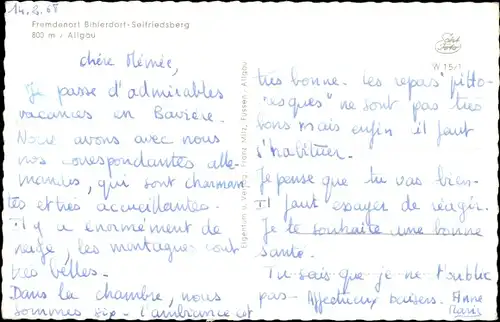 14.2.68
Fremdenort Bihlerdorf-Seifriedsberg
800 m / Allgäu
W 15/1
Eigentum u. Verlag, Franz Milz, Füssen / Allgäu
chère Mémée,
Je passe d'admirables
vacances en Bavière.
Nous avons avec nous
nos correspondantes alle-
mandes, qui sont charman
tes et très accueillantes.
Il y a énormément de
neige, les montagnes sont
très belles.
Dans la chambre, nous
sommes six - l'ambiance est
très bonne. Les repas "pitto-
"resques" ne sont pas très
bons mais enfin il faut
s'habituer.
Je pense que tu vas bien-
Il faut essayer de réagir.
Je te souhaite une bonne
santé.
Tu sais que je ne t'oublie
pas - Affectueux baisers. Anne
Marie